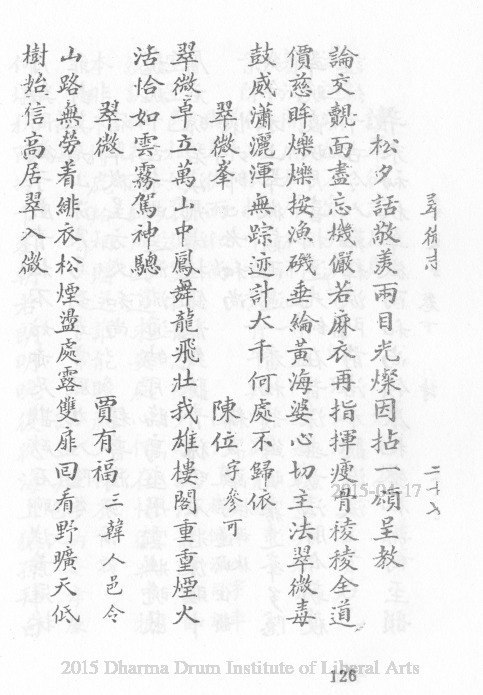 翠微寺 卷下 詩 二十七
松夕話敬羨兩目光燦因拈一頌呈教
論交覿面盡忘機儼若麻衣再指揮瘦骨稜稜全道
價慈眸爍爍按漁磯垂綸黃海婆心切主法翠微毒
鼓威瀟灑渾無踪迹計大千何處不歸依
翠微峯 陳位 字參可
翠微卓立萬山中鳳舞龍飛壯我雄樓閣重重煙火
活恰如雲霧駕神驄
翠微 賈有福 三韓人邑令
山路無勞着緋衣松煙盪處露雙扉回看野曠天低
樹始信高居翠入微
2015-04-17
2015 Dharma Drum Institute of Liberal Arts
126